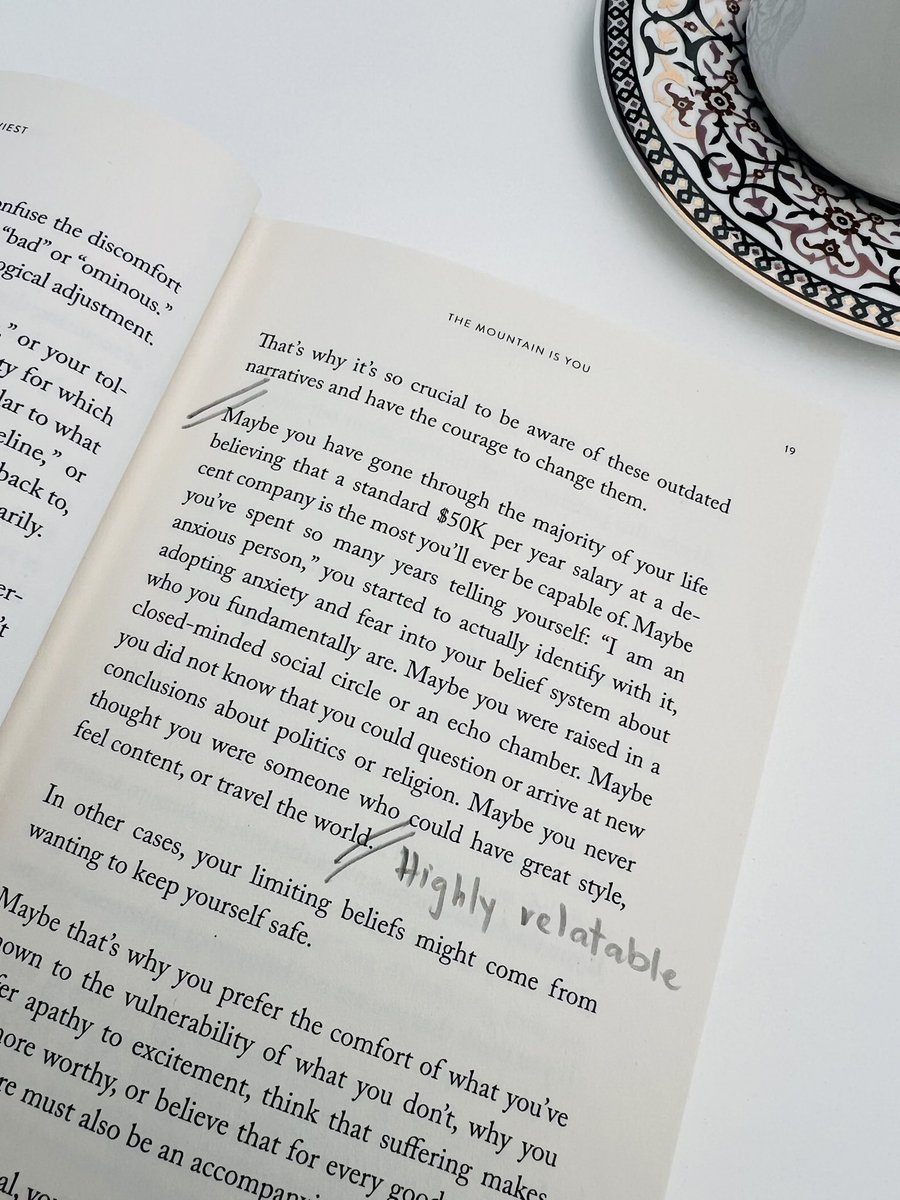 onfuse the discomfort
"bad" or "ominous."
ogical adjustment.
," or your tol-
ty for which
lar to what
eline," or
back to,
arily.
THE MOUNTAIN IS YOU
19
That's why it's so crucial to be aware of these outdated
narratives and have the courage to change them.
Maybe you have gone through the majority of your life
believing that a standard $50K per year salary at a de-
cent company is the most you'll ever be capable of. Maybe
you've spent so many years telling yourself: "I am an
anxious person," you started to actually identify with it,
adopting anxiety and fear into your belief system about
who you fundamentally are. Maybe you were raised in a
closed-minded social circle or an echo chamber. Maybe
you did not know that you could question or arrive at new
conclusions about politics or religion. Maybe you never
thought you were someone who could have great style,
feel content, or travel the world.
Highly relatable
In other cases, your limiting beliefs might come from
wanting to keep yourself safe.
Maybe that's why you prefer the comfort of what you've
nown to the vulnerability of what you don't, why you
fer apathy to excitement, think that suffering makes
more worthy, or believe that for every good
re must also be an